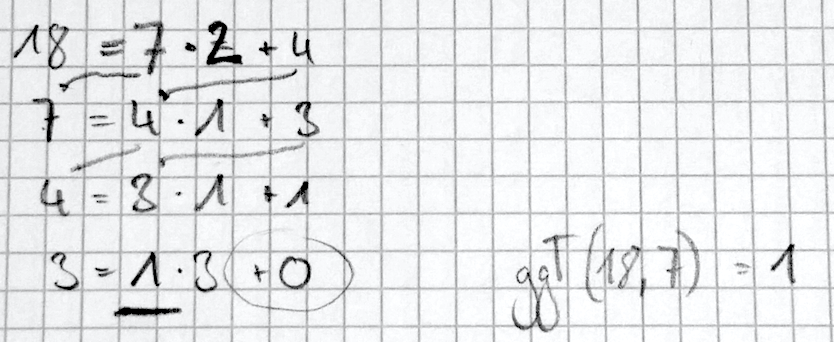 18 = 7 · 2 + 4
7 = 4 · 1 + 3
4 = 3 · 1 + 1
3 = 1 · 3 + 0
ggT (18, 7) = 1